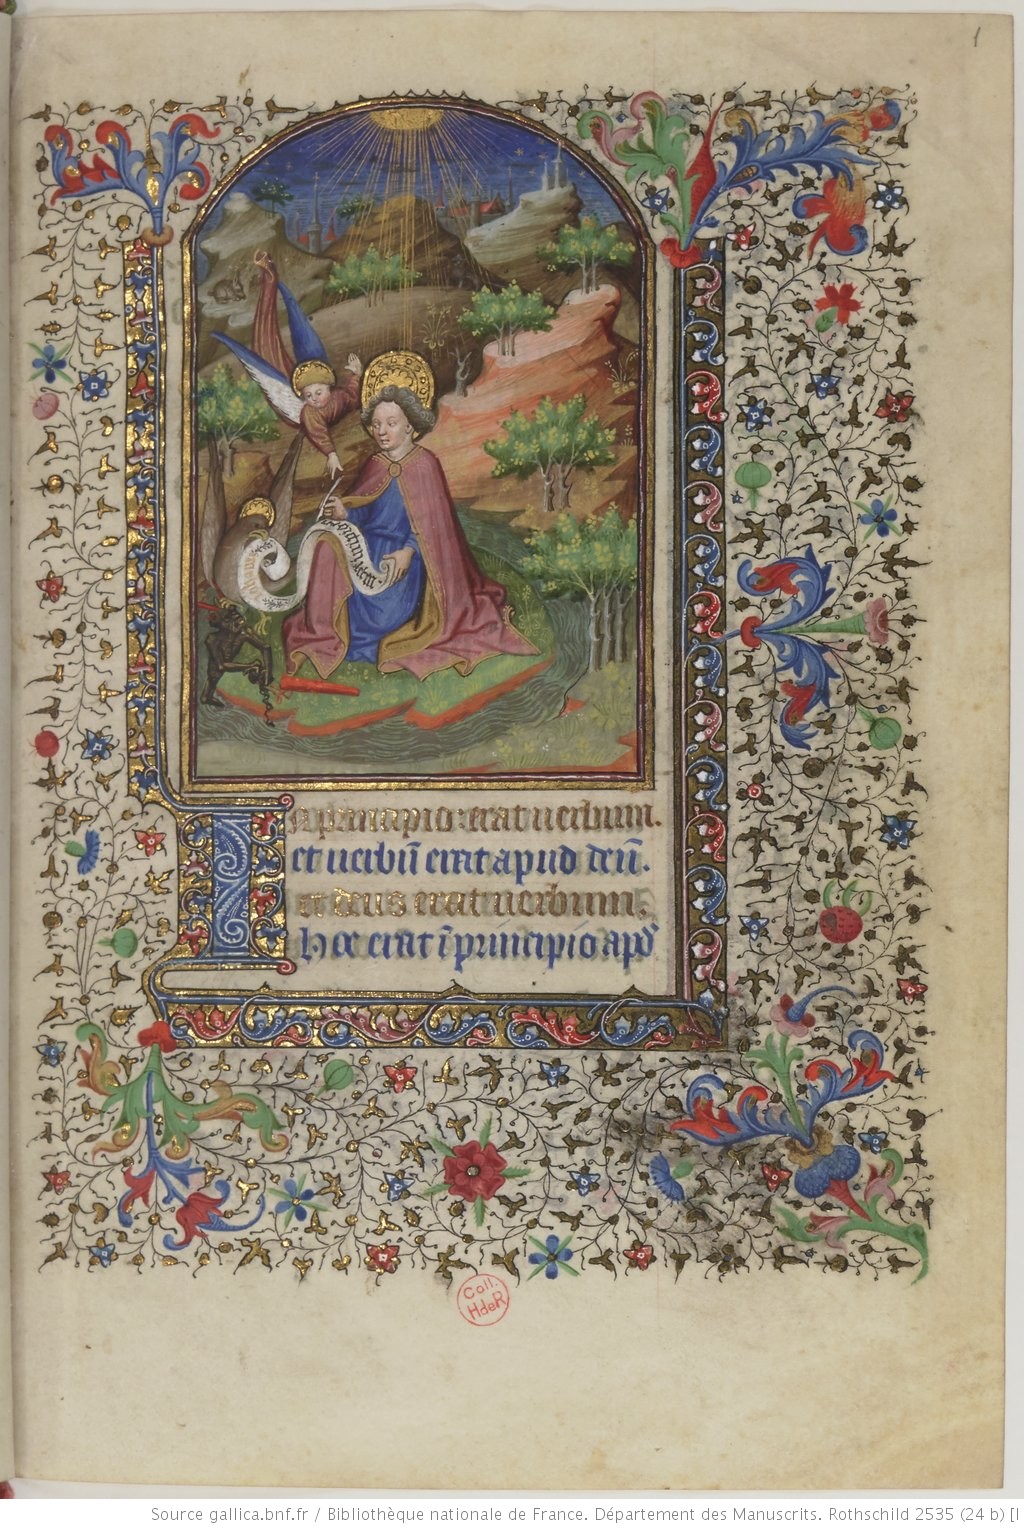 1
In principio erat uerbum.
et uerbū erat apud deū.
et deus erat uerbum.
hoc erat ī principio apd̄
Coll.
HdeR
Source gallica.bnf.fr / Bibliothèque nationale de France. Département des Manuscrits. Rothschild 2535 (24 b) [